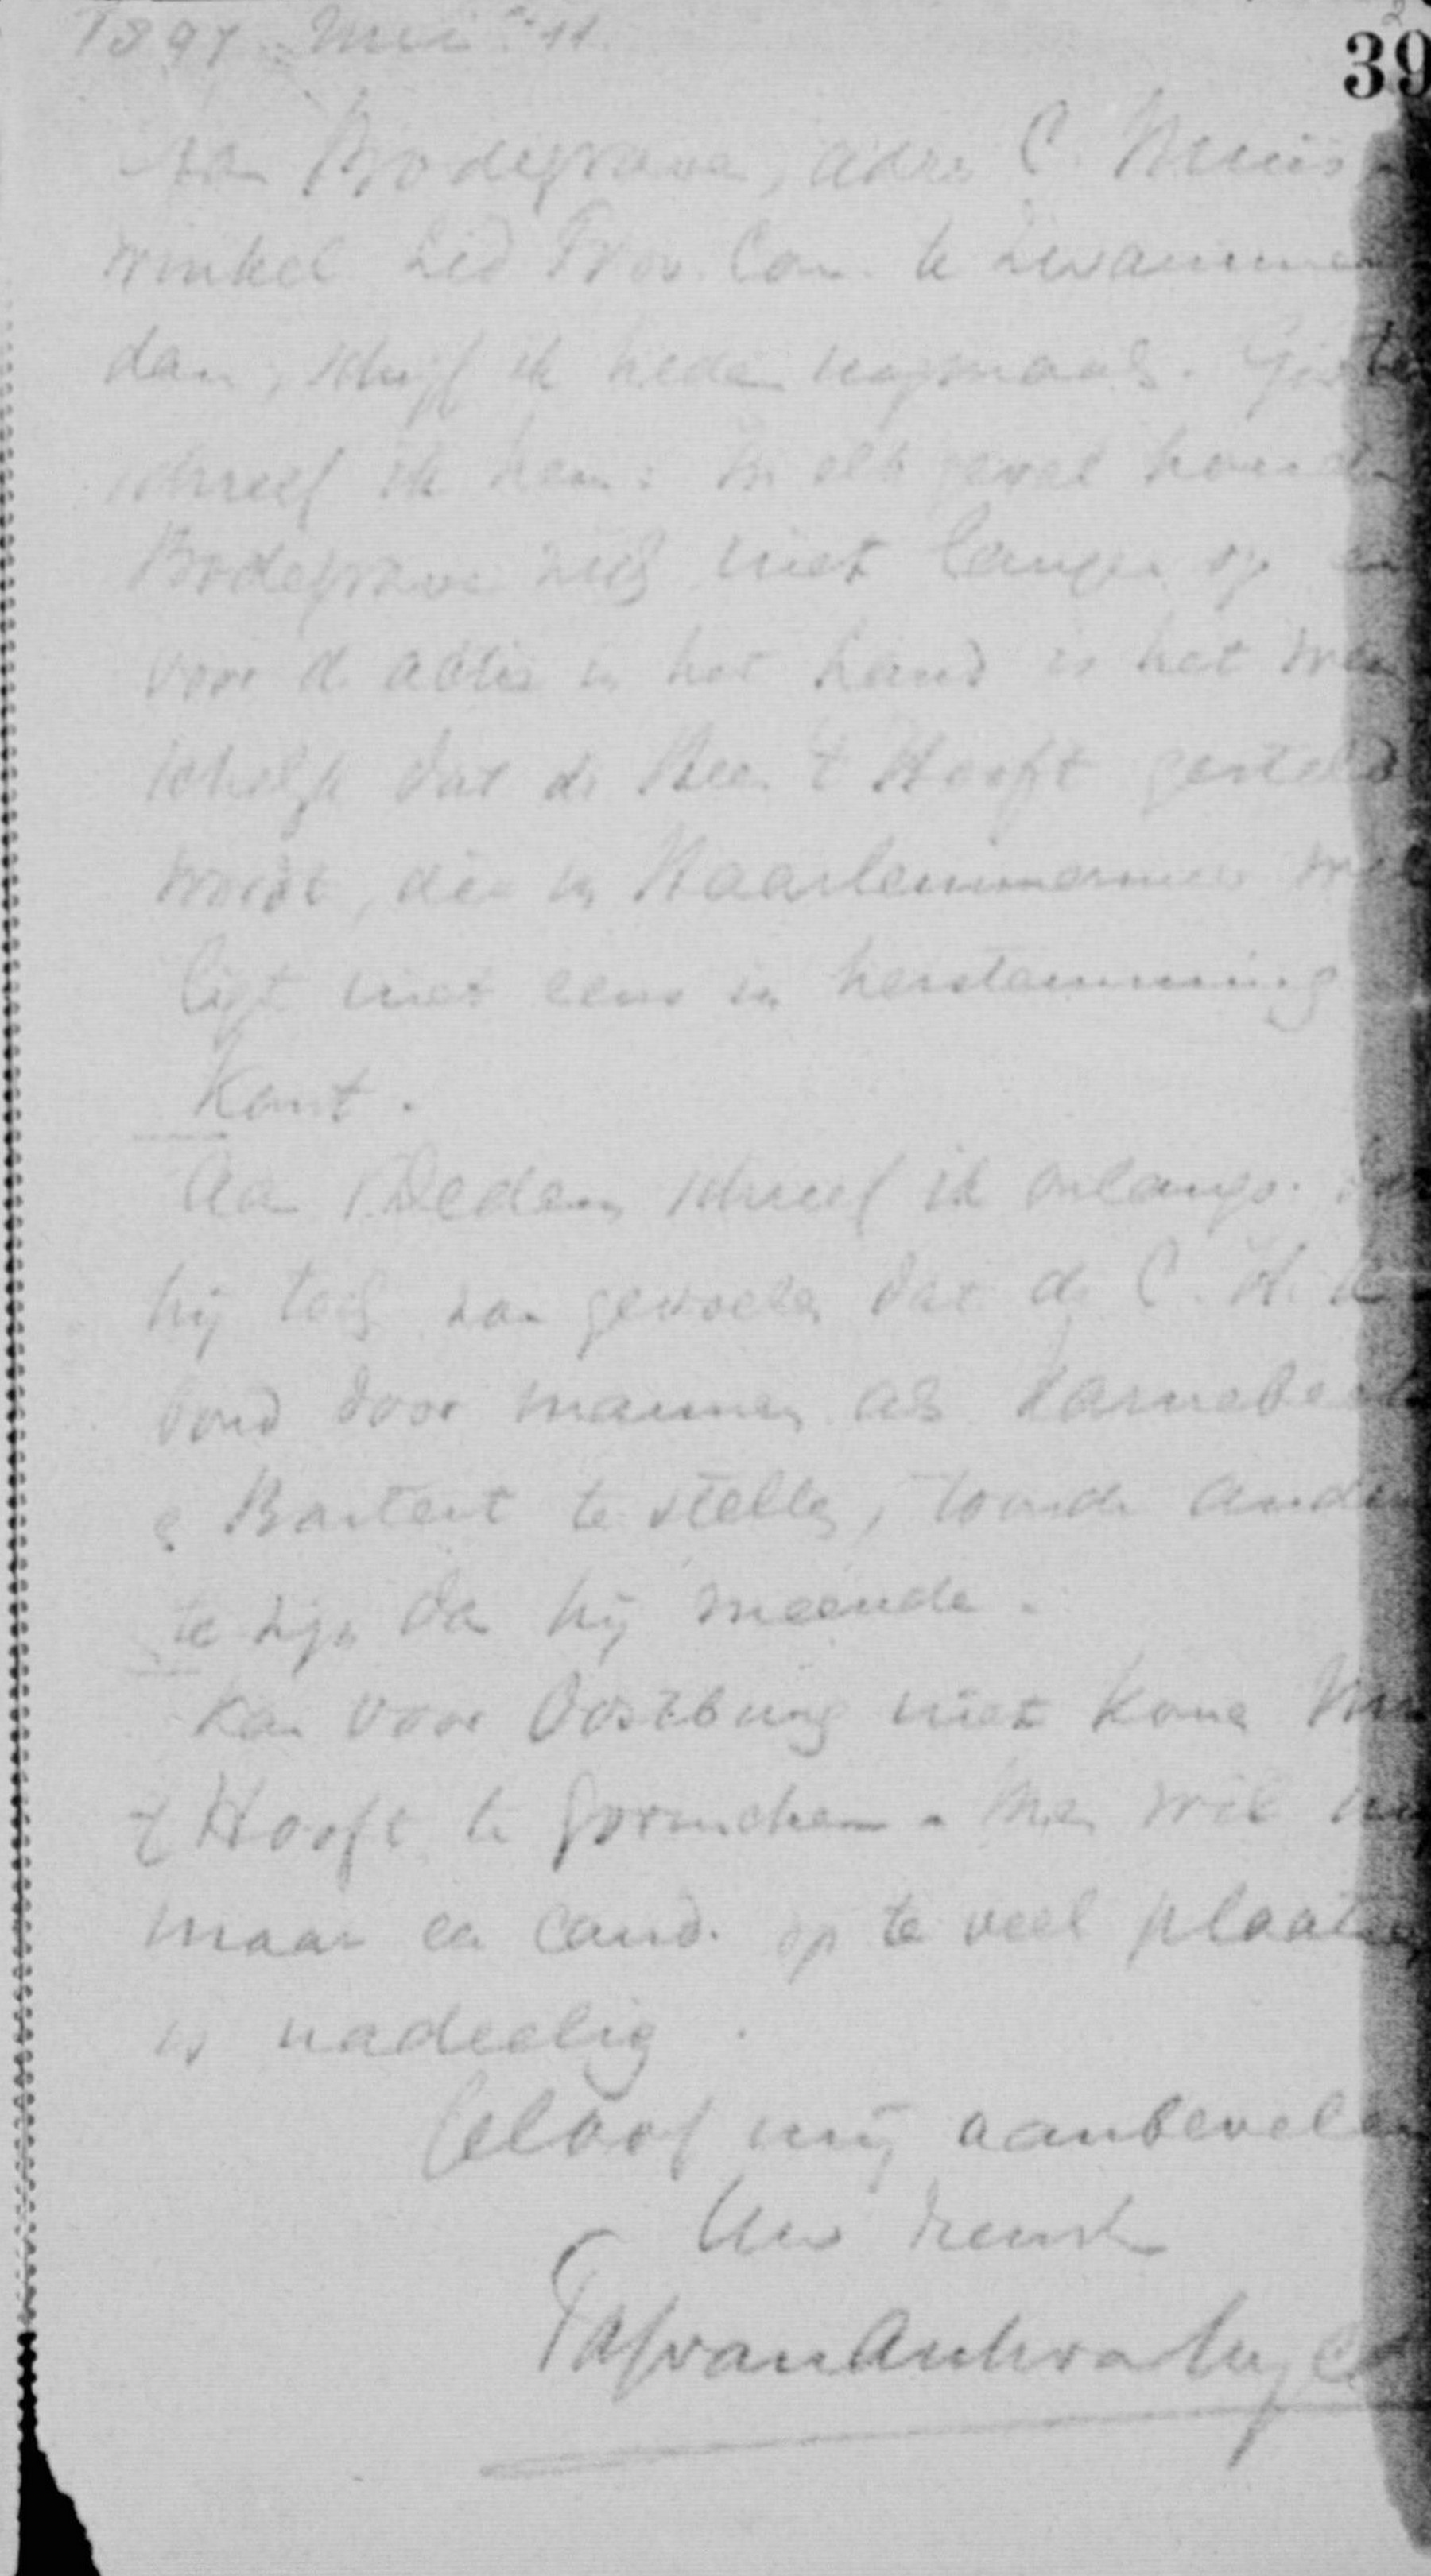 1897 Mei 11.
39
Aan Bodegrave, adres C. Muis
winkel Lid Prov. Com. te Zwammer
dam, schrijf ik heden nogmaals. Gister
schreef ik hem: In elk geval houde
Bodegrave zich niet langer op en
voor de actie in het land is het wen
schelijk dat de Heer 't Hooft gesteld
wordt, die in Haarlemmermeer wel
ligt niet eens in herstemming
komt.
Aan v. Dedem schreef ik onlangs. dat
hij toch zou gevoelen dat de C. H. K
bond door mannen als Karnebeek
& Bastert te stellen, toonde anders
te zijn dan hij meende.
Kan voor Oostburg niet kome Mr
't Hooft te Gorinchem. Men wil hem
maar een cand. op te veel plaatsen
is nadeelig.
Geloof mij aanbevelen
Uw dienstw